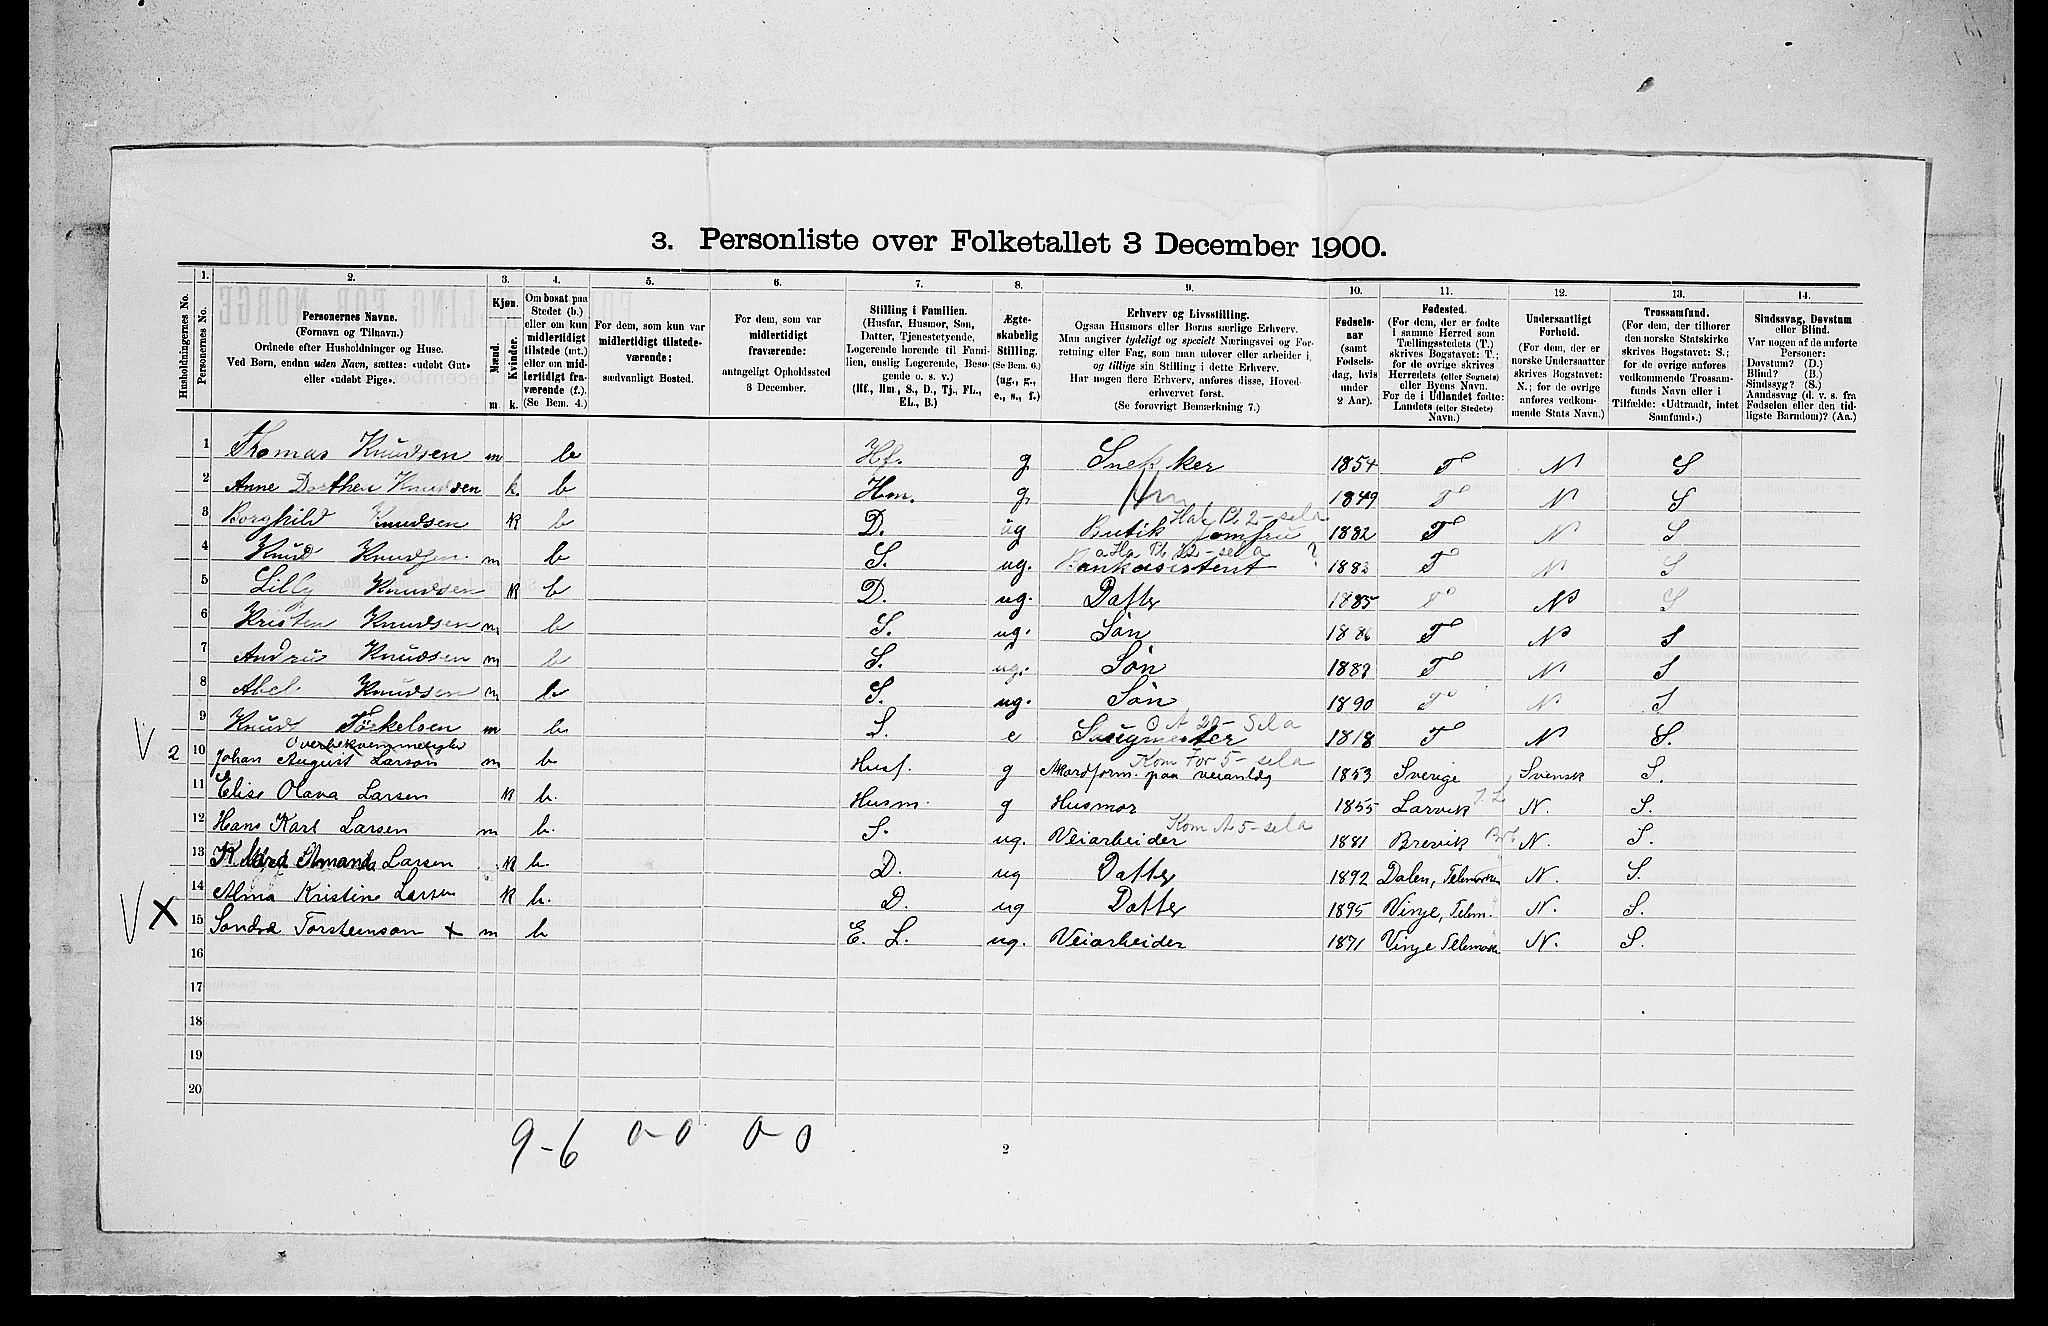 3. Personliste over Folketallet 3 December 1900.
Husholdningernes No.
1. Personernes No.
2. Personernes Navne.
(Fornavn og Tilnavn.)
Ordnede efter Husholdninger og Huse.
Ved Børn, endnu uden Navn, sættes: «udøbt Gut»
eller «udøbt Pige».
3. Kjøn.
Mænd. Kvinder.
m. k.
4. Om bosat paa
Stedet (b.)
eller om kun
midlertidigt
tilstede (mt.)
eller om mid-
lertidigt fra-
værende (f.).
(Se Bem. 4.)
5. For dem, som kun var
midlertidigt tilstede-
værende:
sædvanligt Bosted.
6. For dem, som var
midlertidigt
fraværende:
antageligt Opholdssted
3 December.
7. Stilling i Familien.
(Husfar, Husmor, Søn,
Datter, Tjenestetyende,
Logerende hørende til Fami-
lien, enslig Logerende, Besø-
gende o. s. v.)
(Hf., Hm., S., D., Tj., FL.,
EL., B.)
8. Ægte-
skabelig
Stilling.
(Se Bem. 6.)
(ug., g.,
e., s., f.)
9. Erhverv og Livsstilling.
Ogsaa Husmors eller Børns særlige Erhverv.
Man angiver tydeligt og specielt Næringsvei og For-
retning eller Fag, som man udøver eller arbeider i,
og tillige sin Stilling i dette Erhverv.
Har nogen flere Erhverv, anføres disse, Hoved-
erhvervet først.
(Se forøvrigt Bemærkning 7.)
10. Fødsels-
aar
(samt
Fødsels-
dag, hvis
under
2 Aar).
11. Fødested.
(For dem, der er fødte
i samme Herred som
Tællingsstedets (T.)
skrives Bogstavet: T.;
for de øvrige skrives
Herredets (eller Sognets)
eller Byens Navn.
For de i Udlandet fødte:
Landets (eller Stedets)
Navn.)
12. Undersaatligt
Forhold.
(For dem, der er
norske Undersaatter
skrives Bogstavet:
N.; for de øvrige
anføres vedkom-
mende Stats Navn.)
13. Trossamfund.
(For dem, der tilhører
den norske Statskirke
skrives Bogstavet: S.;
for de øvrige anføres
vedkommende Trossam-
funds Navn eller i
Tilfælde: «Udtraadt, intet
Samfund».)
14. Sindssvag, Døvstum
eller Blind.
Var nogen af de anførte
Personer:
Døvstum? (D.)
Blind? (B.)
Sindssyg? (S.)
Aandssvag (d. v. s. fra
Fødselen eller den tid-
ligste Barndom)? (Aa.)
1 Thomas Knudsen m b Hf. g Snekker 1854 T N S
2 Anne Dorthea Knudsen k. b Hm. g. Hm 1849 T N S
3 Borghild Knudsen k b D. ug Butik jomfru 1882 T N S
4 Knud Knudsen m b S. ug. Bankasistent ? 1883 T N S
5 Lilly Knudsen k b D. ug. Datter 1885 T N S
6 Kristen Knudsen m b S. ug. Søn 1886 T N S
7 Knudsen m b S. ug. Søn T N S
8 Abel Knudsen m b S. ug. Søn 1890 T N S
V 9 Knud Torkelsen m b S. e 1818 T N S.
2 10 Johan August Larson m b Husf. g Akordform. paa veianlæg 1853 Sverige Svensk S.
11 Elise Olava Larsen k b. Husm. g Husmor 1855 Larvik N. S.
12 Hans Karl Larsen m b. S. ug. Veiarbeider 1881 Brevik N. S.
13 Amanda Larsen k b. D. ug Datter 1892 Dalen, Telemarken N. S.
14 Alma Kristine Larsen k b. D. ug Datter 1895 Vinje, Telm. N. S.
V X 15 Sondre Torsteinson x m b E. L. ug. Veiarbeider 1871 Vinje Telemarken N. S.
16
17
18
19
20
9-6 0-0 0-0
2